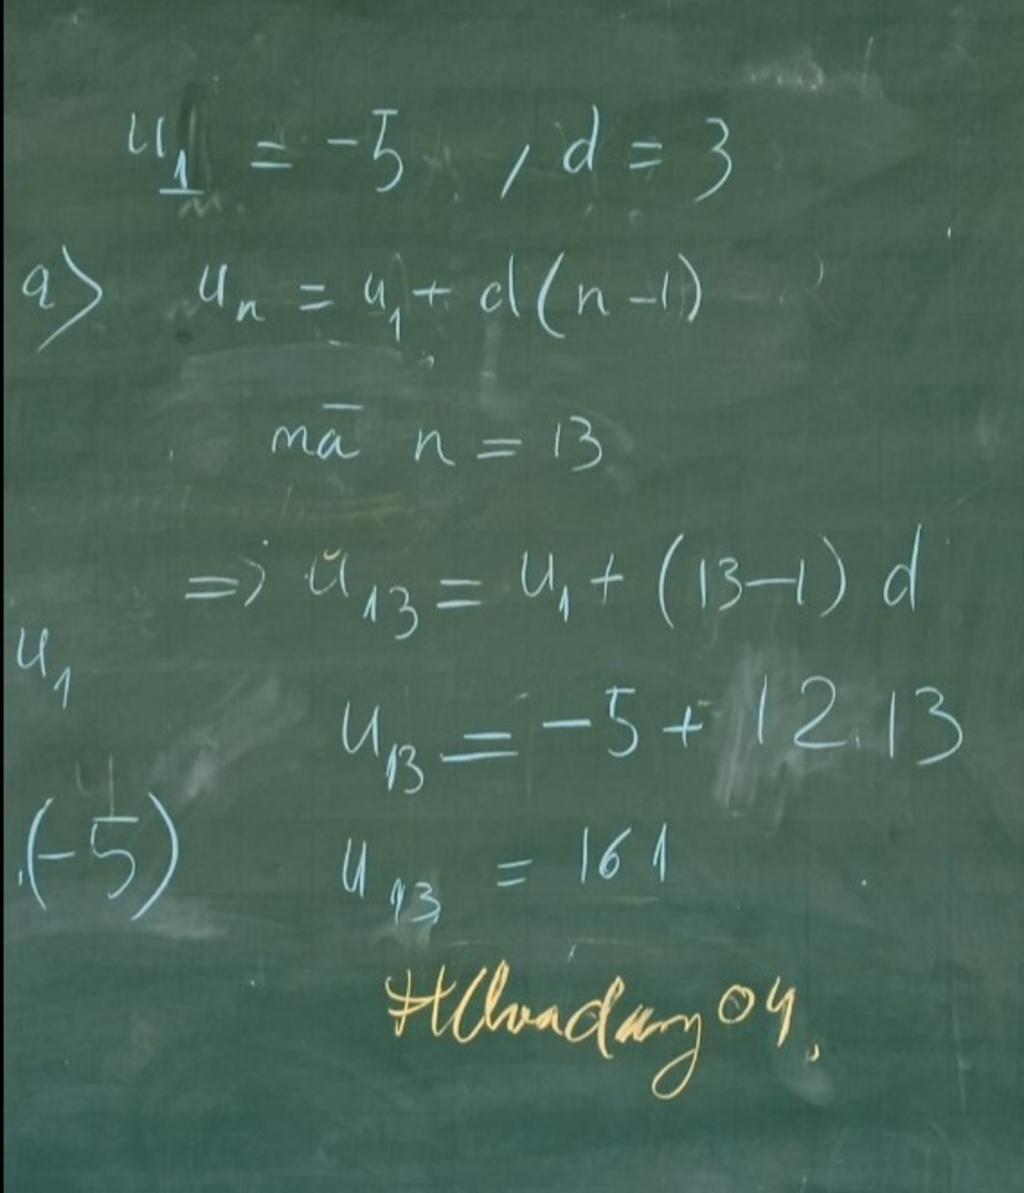 u₁ = -5 , d = 3
a) uₙ = u₁ + d(n-1)
mā n = 13
=> u₁₃ = u₁ + (13-1) d
u₁
u₁₃ = -5 + 12.13
(-5)
u₁₃ = 161
04